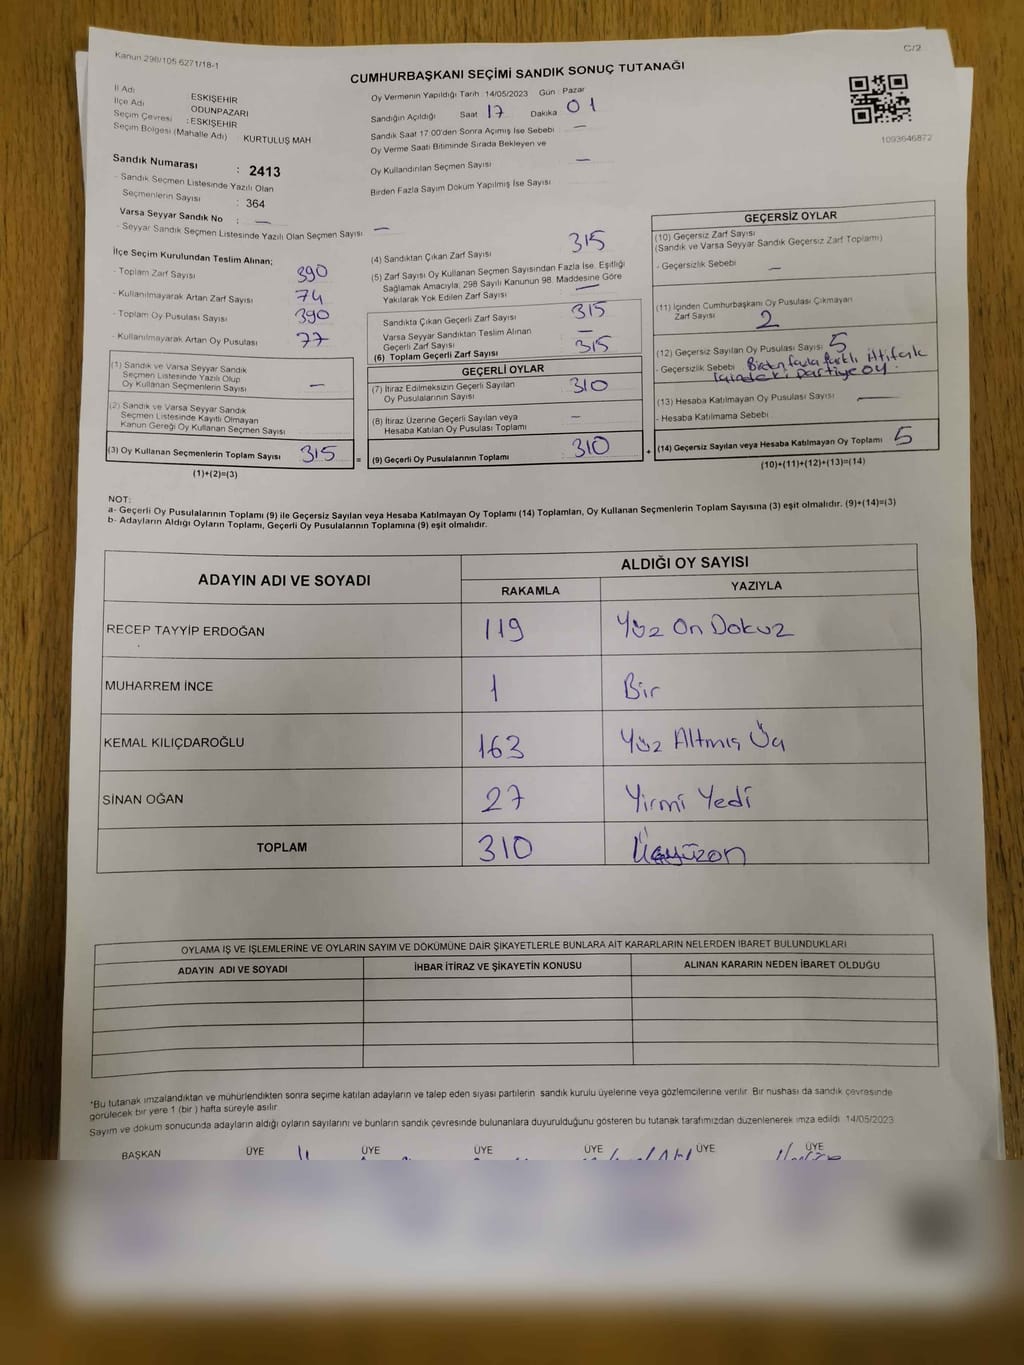 Kanun 298/105 6271/18-1
C/2
CUMHURBAŞKANI SEÇİMİ SANDIK SONUÇ TUTANAĞI
İl Adı : ESKİŞEHİR
İlçe Adı ODUNPAZARI
Seçim Çevresi : ESKİŞEHİR
Seçim Bölgesi (Mahalle Adı) KURTULUŞ MAH
Sandık Numarası : 2413
- Sandık Seçmen Listesinde Yazılı Olan
Seçmenlerin Sayısı : 364
Varsa Seyyar Sandık No : —
- Seyyar Sandık Seçmen Listesinde Yazılı Olan Seçmen Sayısı —
Oy Vermenin Yapıldığı Tarih 14/05/2023 Gün : Pazar
Sandığın Açıldığı Saat 17 Dakika 01
Sandık Saat 17:00'den Sonra Açımış İse Sebebi —
Oy Verme Saati Bitiminde Sırada Bekleyen ve
Oy Kullandırılan Seçmen Sayısı —
Birden Fazla Sayım Döküm Yapılmış İse Sayısı
1093646872
İlçe Seçim Kurulundan Teslim Alınan;
- Toplam Zarf Sayısı 390
- Kullanılmayarak Artan Zarf Sayısı 74
- Toplam Oy Pusulası Sayısı 390
- Kullanılmayarak Artan Oy Pusulası 77
(1) Sandık ve Varsa Seyyar Sandık
Seçmen Listesinde Yazılı Olup
Oy Kullanan Seçmenlerin Sayısı —
(2) Sandık ve Varsa Seyyar Sandık
Seçmen Listesinde Kayıtlı Olmayan
Kanun Gereği Oy Kullanan Seçmen Sayısı
(3) Oy Kullanan Seçmenlerin Toplam Sayısı 315
(1)+(2)=(3)
(4) Sandıktan Çıkan Zarf Sayısı 315
(5) Zarf Sayısı Oy Kullanan Seçmen Sayısından Fazla İse, Eşitliği
Sağlamak Amacıyla, 298 Sayılı Kanunun 98. Maddesine Göre
Yakılarak Yok Edilen Zarf Sayısı : —
Sandıkta Çıkan Geçerli Zarf Sayısı 315
Varsa Seyyar Sandıktan Teslim Alınan
Geçerli Zarf Sayısı —
(6) Toplam Geçerli Zarf Sayısı 315
GEÇERLİ OYLAR
(7) İtiraz Edilmeksizin Geçerli Sayılan
Oy Pusulalarının Sayısı 310
(8) İtiraz Üzerine Geçerli Sayılan veya
Hesaba Katılan Oy Pusulası Toplamı —
= (9) Geçerli Oy Pusulalarının Toplamı 310
GEÇERSİZ OYLAR
(10) Geçersiz Zarf Sayısı
(Sandık ve Varsa Seyyar Sandık Geçersiz Zarf Toplamı)
- Geçersizlik Sebebi —
(11) İçinden Cumhurbaşkanı Oy Pusulası Çıkmayan
Zarf Sayısı 2
(12) Geçersiz Sayılan Oy Pusulası Sayısı 5
- Geçersizlik Sebebi Birden fazla farklı ittifak
içindeki partiye oy.
(13) Hesaba Katılmayan Oy Pusulası Sayısı —
- Hesaba Katılmama Sebebi
+ (14) Geçersiz Sayılan veya Hesaba Katılmayan Oy Toplamı 5
(10)+(11)+(12)+(13)=(14)
NOT:
a- Geçerli Oy Pusulalarının Toplamı (9) ile Geçersiz Sayılan veya Hesaba Katılmayan Oy Toplamı (14) Toplamları, Oy Kullanan Seçmenlerin Toplam Sayısına (3) eşit olmalıdır. (9)+(14)=(3)
b- Adayların Aldığı Oyların Toplamı, Geçerli Oy Pusulalarının Toplamına (9) eşit olmalıdır.
ADAYIN ADI VE SOYADI
ALDIĞI OY SAYISI
RAKAMLA YAZIYLA
RECEP TAYYİP ERDOĞAN 119 Yüz On Dokuz
MUHARREM İNCE 1 Bir
KEMAL KILIÇDAROĞLU 163 Yüz Altmış Üç
SİNAN OĞAN 27 Yirmi Yedi
TOPLAM 310 Üçyüzon
OYLAMA İŞ VE İŞLEMLERİNE VE OYLARIN SAYIM VE DÖKÜMÜNE DAİR ŞİKAYETLERLE BUNLARA AİT KARARLARIN NELERDEN İBARET BULUNDUKLARI
ADAYIN ADI VE SOYADI İHBAR İTİRAZ VE ŞİKAYETİN KONUSU ALINAN KARARIN NEDEN İBARET OLDUĞU
*Bu tutanak imzalandıktan ve mühürlendikten sonra seçime katılan adayların ve talep eden siyasi partilerin sandık kurulu üyelerine veya gözlemcilerine verilir. Bir nüshası da sandık çevresinde
görülecek bir yere 1 (bir) hafta süreyle asılır
Sayım ve döküm sonucunda adayların aldığı oyların sayılarını ve bunların sandık çevresinde bulunanlara duyurulduğunu gösteren bu tutanak tarafımızdan düzenlenerek imza edildi 14/05/2023
BAŞKAN ÜYE ÜYE ÜYE ÜYE ÜYE ÜYE